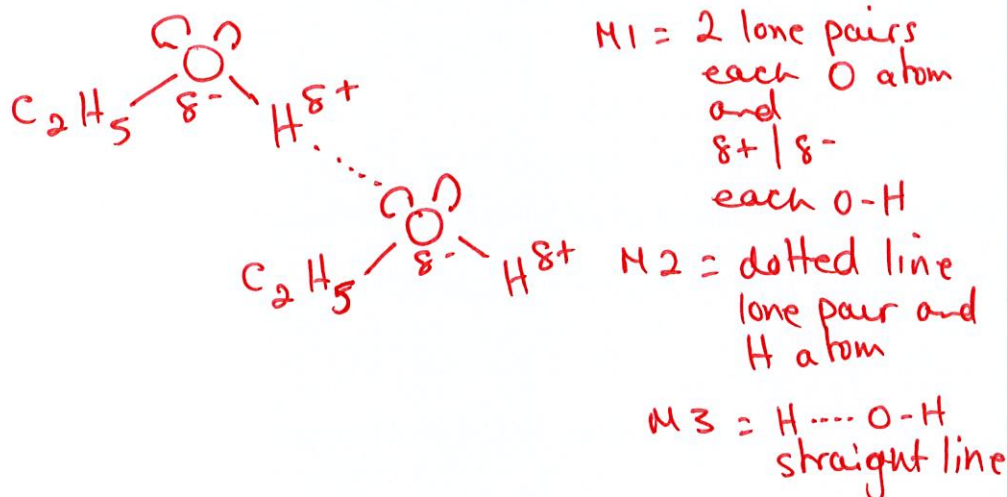 O
C2H5
δ-
H δ+
O
C2H5
δ-
H δ+
M1 = 2 lone pairs
each O atom
and
δ+ | δ-
each O-H
M2 = dotted line
lone pair and
H atom
M3 = H ···· O-H
straight line